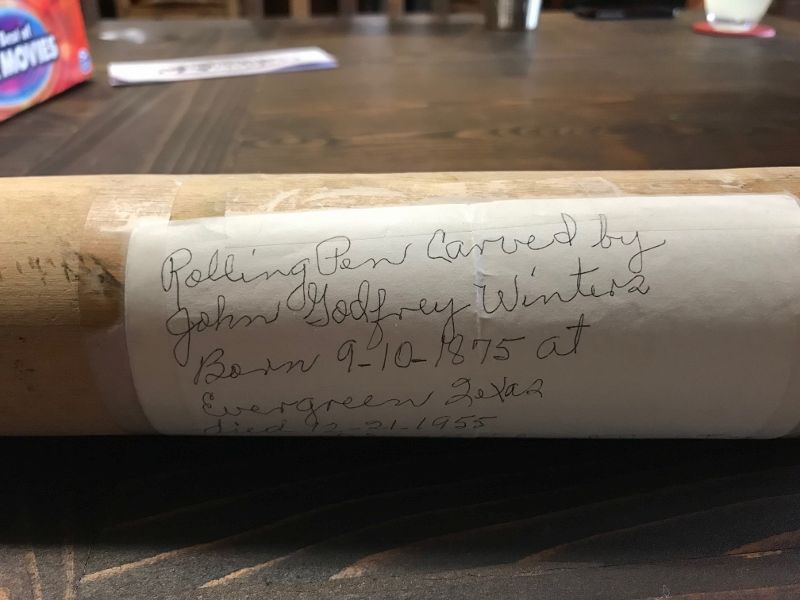 Best of
MOVIES
Rolling Pen Carved by
John Godfrey Winters
Born 9-10-1875 at
Evergreen Texas
died 12-21-1955